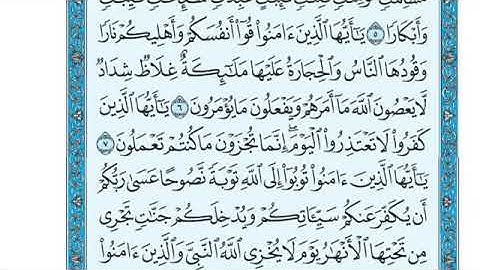 وَأَبْكَارًا ٥ يَٰٓأَيُّهَا ٱلَّذِينَ ءَامَنُوا۟ قُوٓا۟ أَنفُسَكُمْ وَأَهْلِيكُمْ نَارًا
وَقُودُهَا ٱلنَّاسُ وَٱلْحِجَارَةُ عَلَيْهَا مَلَٰٓئِكَةٌ غِلَاظٌ شِدَادٌ
لَّا يَعْصُونَ ٱللَّهَ مَآ أَمَرَهُمْ وَيَفْعَلُونَ مَا يُؤْمَرُونَ ٦ يَٰٓأَيُّهَا ٱلَّذِينَ
كَفَرُوا۟ لَا تَعْتَذِرُوا۟ ٱلْيَوْمَ ۖ إِنَّمَا تُجْزَوْنَ مَا كُنتُمْ تَعْمَلُونَ ٧
يَٰٓأَيُّهَا ٱلَّذِينَ ءَامَنُوا۟ تُوبُوٓا۟ إِلَى ٱللَّهِ تَوْبَةً نَّصُوحًا عَسَىٰ رَبُّكُمْ
أَن يُكَفِّرَ عَنكُمْ سَيِّـَٔاتِكُمْ وَيُدْخِلَكُمْ جَنَّٰتٍ تَجْرِى
مِن تَحْتِهَا ٱلْأَنْهَٰرُ يَوْمَ لَا يُخْزِى ٱللَّهُ ٱلنَّبِىَّ وَٱلَّذِينَ ءَامَنُوا۟